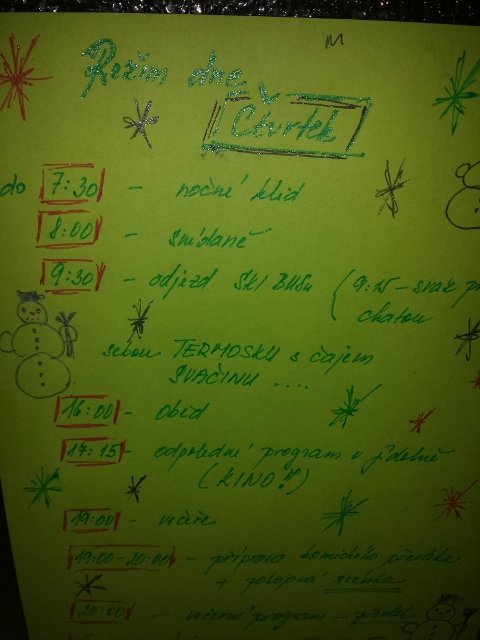 Režim dne
Čtvrtek
do 7:30 - noční klid
8:00 - snídaně
9:30 - odjezd SKI BUSU (9:15 - sraz př
chatou
sebou TERMOSKU s čajem
SVAČINU ....
16:00 - oběd
17:15 - odpolední program v jídelně
(KINO!!)
19:00 - večeře
19:00-20:00 - příprava komického převleku
+ pokojová scénka
20:00 - večerní program -